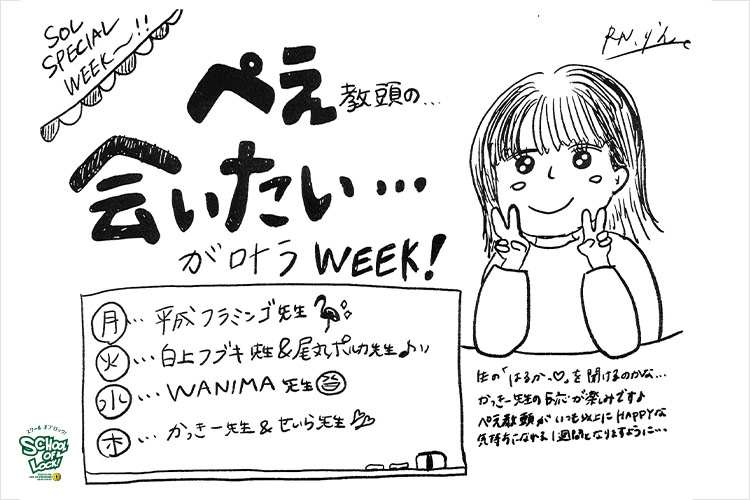 SOL
SPECIAL
WEEK〜!!
R.N. り'ん
ぺえ教頭の…
会いたい…
が叶う WEEK!
月…平成フラミンゴ先生
火…白上フブキ先生&尾丸ポルカ先生♪
水…WANIMA 先生
木…かっきー先生&せいら先生
生の「はるかっ♡」を聞けるのかな…
かっきー先生の反応が楽しみです♪
ぺえ教頭がいつも以上にHAPPYな
気持ちになれる1週間となりますように…
スクール オブ ロック!
SCHOOL
OF
LOCK!